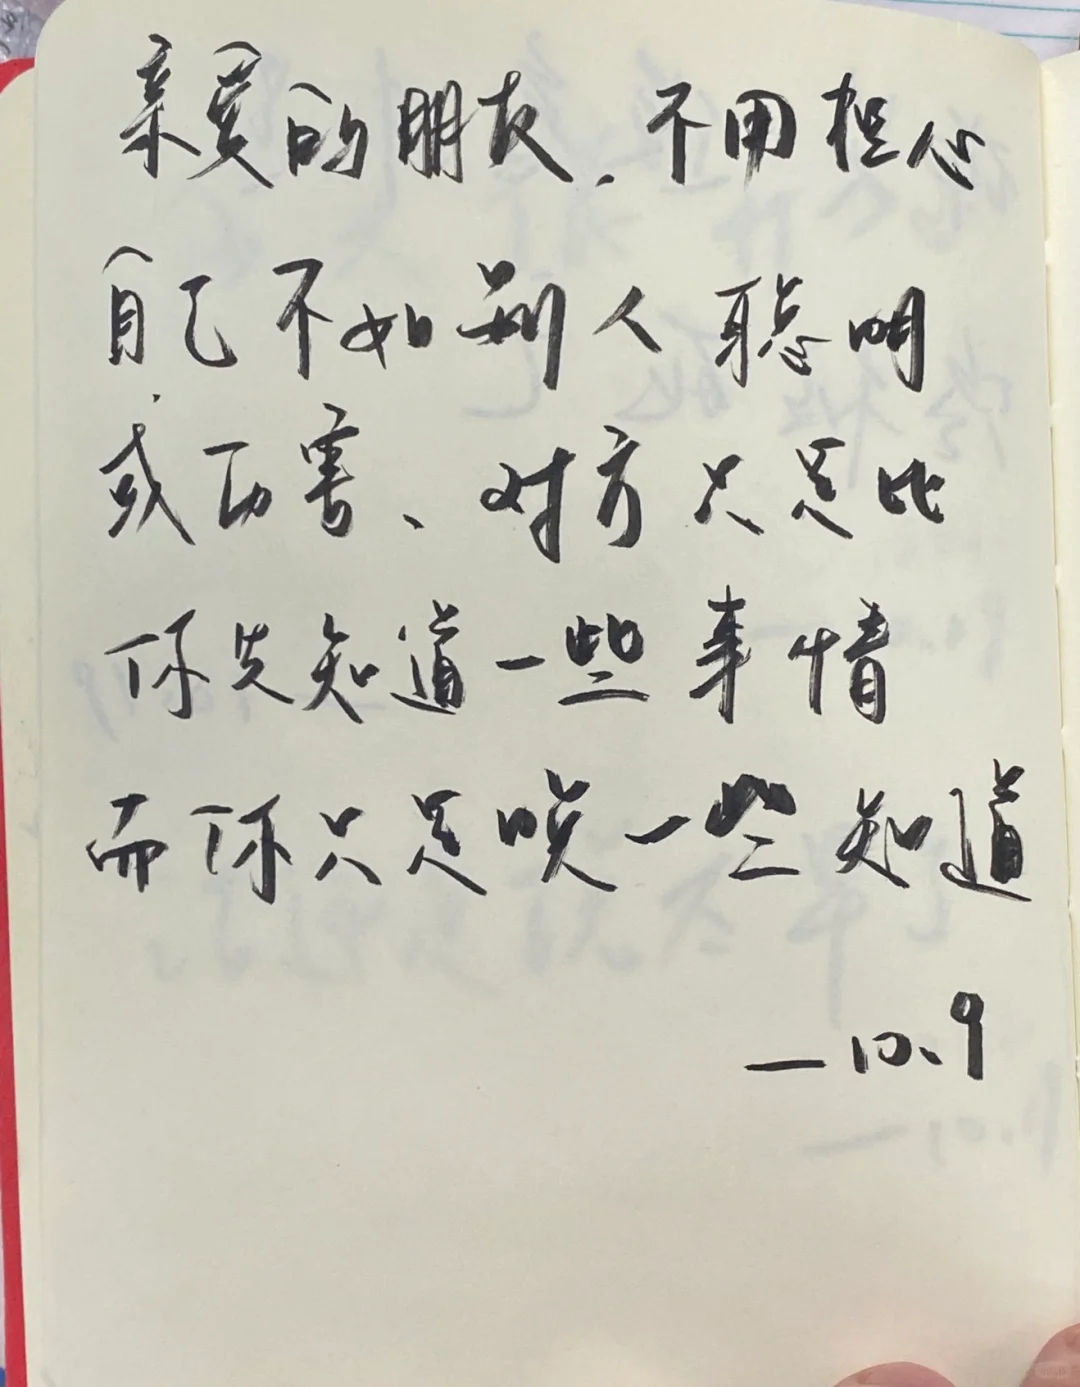 亲爱的朋友、不用担心
自己不如别人聪明
或历害、对方只是比
你先知道一些事情
而你只是晚一些知道
—10.9